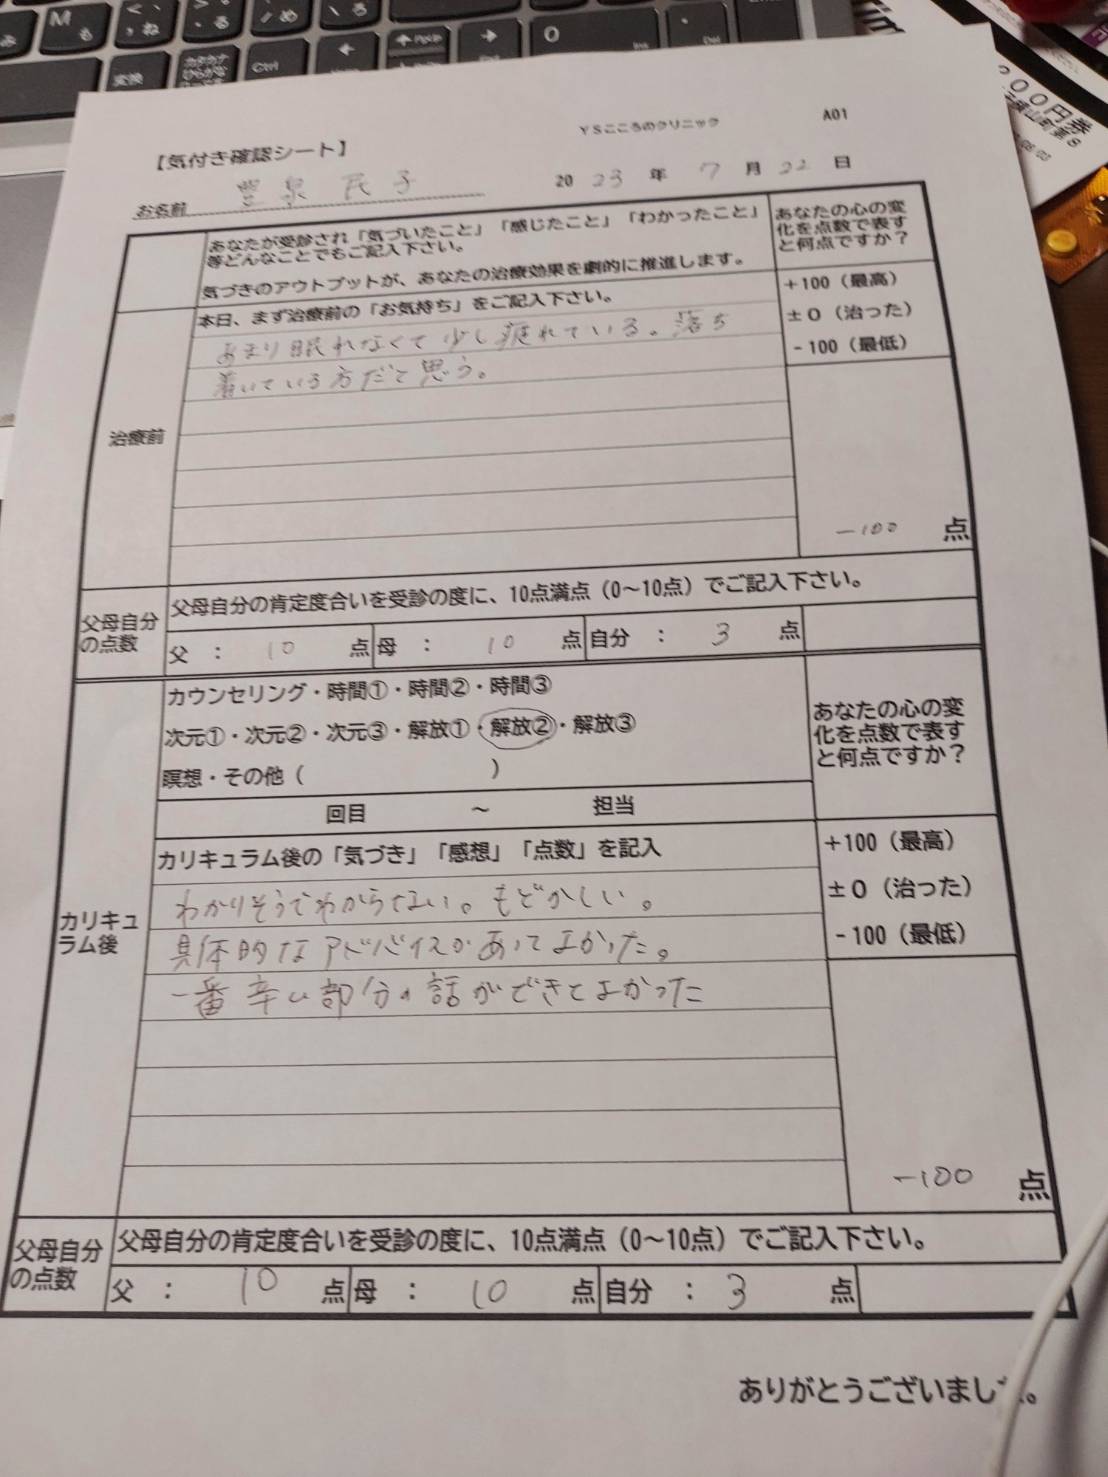 YSこころのクリニック
A01
【気付き確認シート】
お名前 豊泉 民子
2023年 7月 22日
あなたが受診され「気づいたこと」「感じたこと」「わかったこと」
等どんなことでもご記入下さい。
気づきのアウトプットが、あなたの治療効果を劇的に推進します。
あなたの心の変
化を点数で表す
と何点ですか？
本日、まず治療前の「お気持ち」をご記入下さい。
+100（最高）
±0（治った）
-100（最低）
治療前
あまり眠れなくて少し疲れている。落ち
着いている方だと思う。
-100 点
父母自分
の点数
父母自分の肯定度合いを受診の度に、10点満点（0〜10点）でご記入下さい。
父 ： 10 点 母 ： 10 点 自分 ： 3 点
カウンセリング・時間①・時間②・時間③
次元①・次元②・次元③・解放①・解放②・解放③
瞑想・その他（ ）
回目 〜 担当
あなたの心の変
化を点数で表す
と何点ですか？
カリキュ
ラム後
カリキュラム後の「気づき」「感想」「点数」を記入
+100（最高）
±0（治った）
-100（最低）
わかりそうでわからない。もどかしい。
具体的なアドバイスがあってよかった。
一番辛い部分の話ができてよかった
-100 点
父母自分
の点数
父母自分の肯定度合いを受診の度に、10点満点（0〜10点）でご記入下さい。
父 ： 10 点 母 ： 10 点 自分 ： 3 点
ありがとうございまし
M も
ね
る
め
ろ
変換
カタカナ
ひらがな
Ctrl
PgUp
0
Ins
Del
00円券